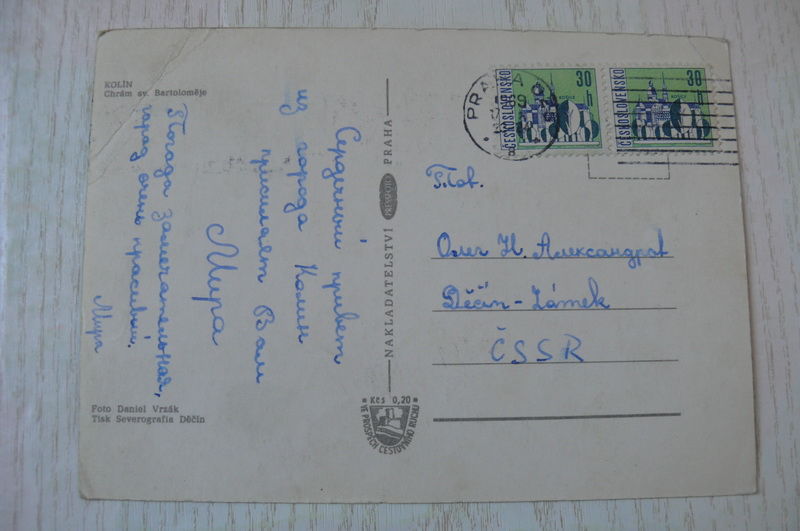 KOLÍN
Chrám sv. Bartoloměje
Сердечный привет
из города Колин
присылает Вам
Мира
Погода замечательная,
город очень красивый.
Мира
Foto Daniel Vrzák
Tisk Severografia Děčín
NAKLADATELSTVÍ PRESSFOTO PRAHA
Kčs 0,20
VE PROSPĚCH CESTOVNÍHO RUCHU
PRAHA
ČESKOSLOVENSKO
30
h
ČESKOSLOVENSKO
30
h
Олег Н. Александров
Děčín-Zámek
ČSSR